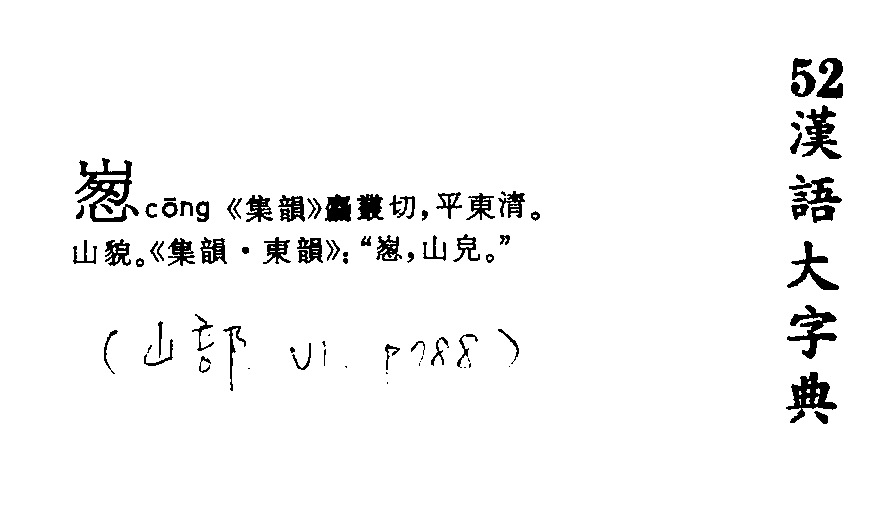 cōng《集韻》麤叢切，平東清。
山貌。《集韻·東韻》：“，山皃。”
(山部. V1. P788)
52漢語大字典